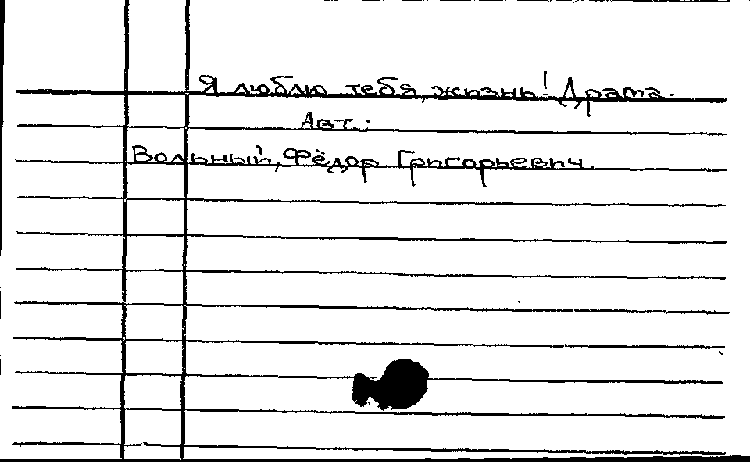 Я люблю тебя, жизнь! Драма.
Авт.:
Вольный, Фёдор Григорьевич.